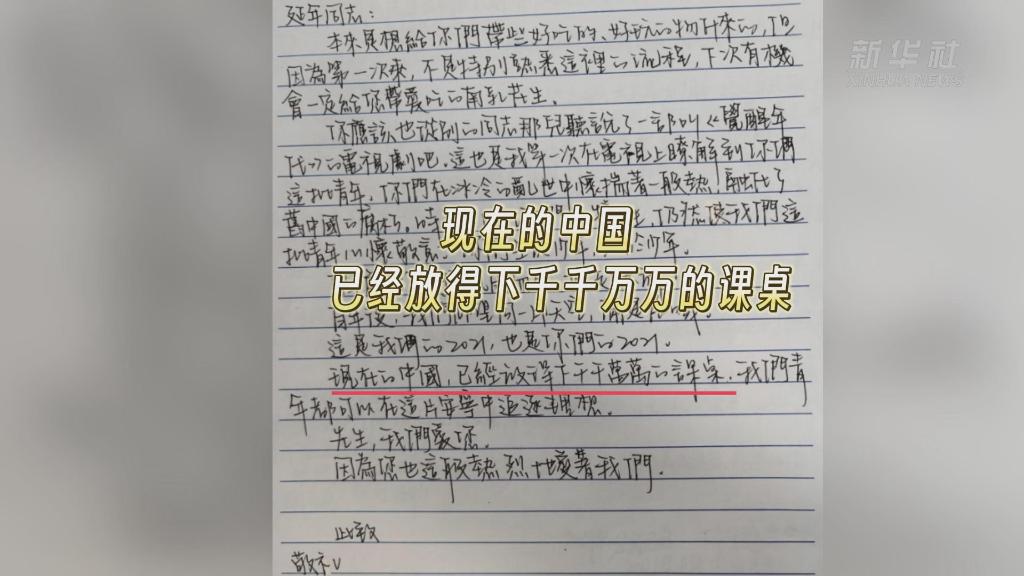 新华社
XINHUA NEWS
延年同志：
本來是想給你們帶些好吃的、好玩的物件來的，但
因為第一次來，不是特別熟悉這裡的流程，下次有機
會一定給您帶愛吃的南乳花生。
你應該也從別的同志那兒聽說了一部叫《覺醒年
代》的電視劇吧。這也是我第一次在電視上瞭解到你們
這批青年。你們在冰冷的亂世中懷揣著一股熱
舊中國的腐朽。仍然使我們這
批青年心懷敬意
现在的中国
已经放得下千千万万的课桌
這是我們的2021，也是你們的2021。
現在的中國，已經放得下千千萬萬的課桌，我們青
年都可以在這片安寧中追逐理想。
先生，我們愛您。
因為您也這般熱烈地愛著我們。
此致
敬礼